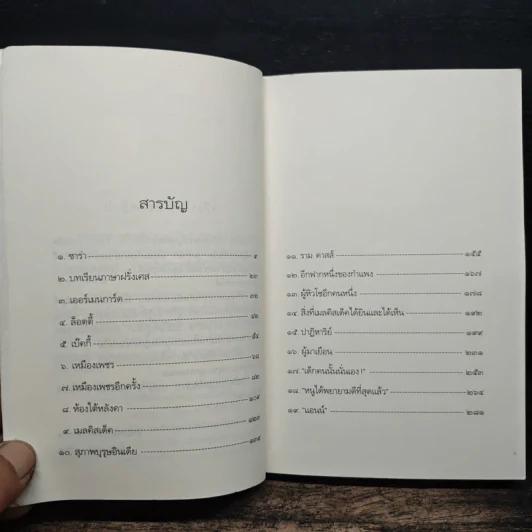 สารบัญ
๑. ซาร่า
๒. บทเรียนภาษาฝรั่งเศส
๓. เออร์เมนการ์ด ๓๒
๔. ล็อตตี้ ๔๒
๕. เบ็คกี้ ๕๔
๖. เหมืองเพชร ๖๘
๗. เหมืองเพชรอีกครั้ง ๘๒
๘. ห้องใต้หลังคา ๑๐๙
๙. เมลคิสเด็ค ๑๒๓
๑๐. สุภาพบุรุษอินเดีย
๑๑. ราม ดาสส์ ๑๕๕
๑๒. อีกฟากหนึ่งของกำแพง ๑๖๗
๑๓. ผู้หิวโซอีกคนหนึ่ง ๑๗๘
๑๔. สิ่งที่เมลคิสเด็คได้ยินและได้เห็น ๑๙๒
๑๕. ปาฏิหาริย์ ๑๙๙
๑๖. ผู้มาเยือน ๒๓๑
๑๗. "เด็กคนนั้นนั่นเอง!" ๒๕๓
๑๘. "หนูได้พยายามดีที่สุดแล้ว" ๒๖๔
๑๙. "แอนน์" ๒๘๑